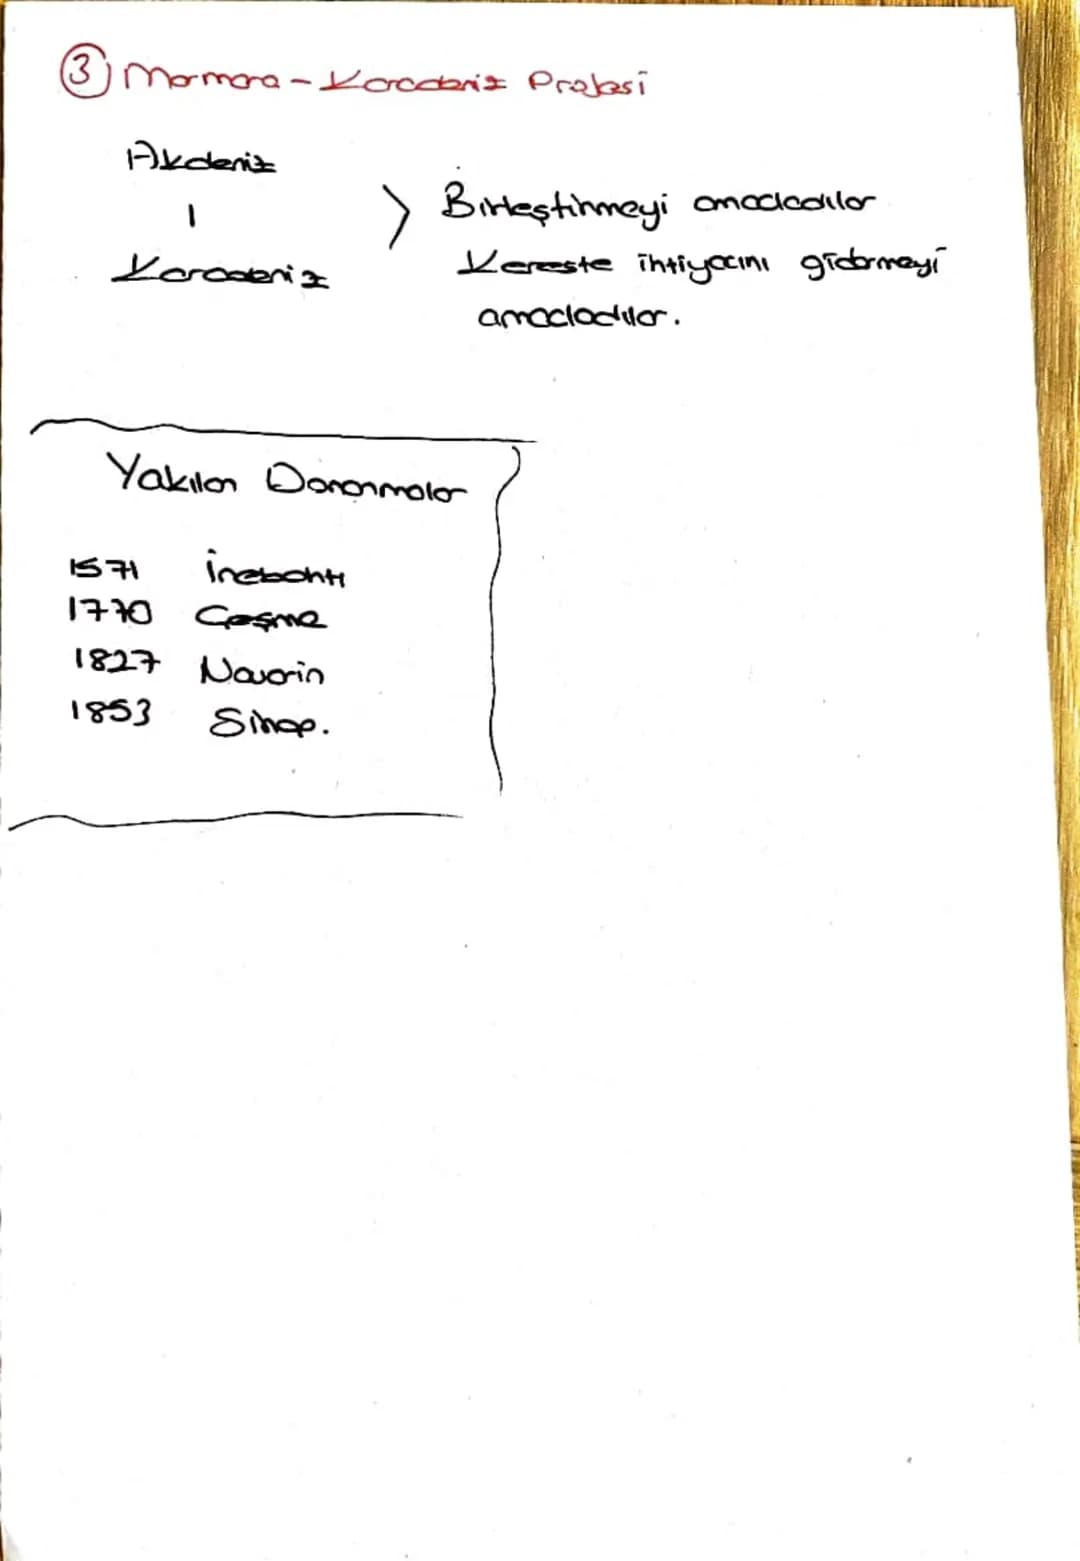 3 Marmara - Karadeniz Projesi
Akdeniz
|
Karadeniz
> Birleştirmeyi amaçladılar
Kereste ihtiyacını gidermeyi
amacladılar.
Yakılan Donanmalar
1571 İnebahtı
1770 Çeşme
1827 Navarin
1853 Sinop.